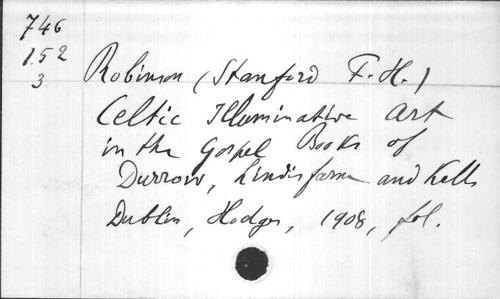 746
152
3
Robinson (Stanford F. H.)
Celtic Illuminative Art
in the Gospel Books of
Durrow, Lindisfarne and Kells
Dublin, Hodges, 1908, fol.